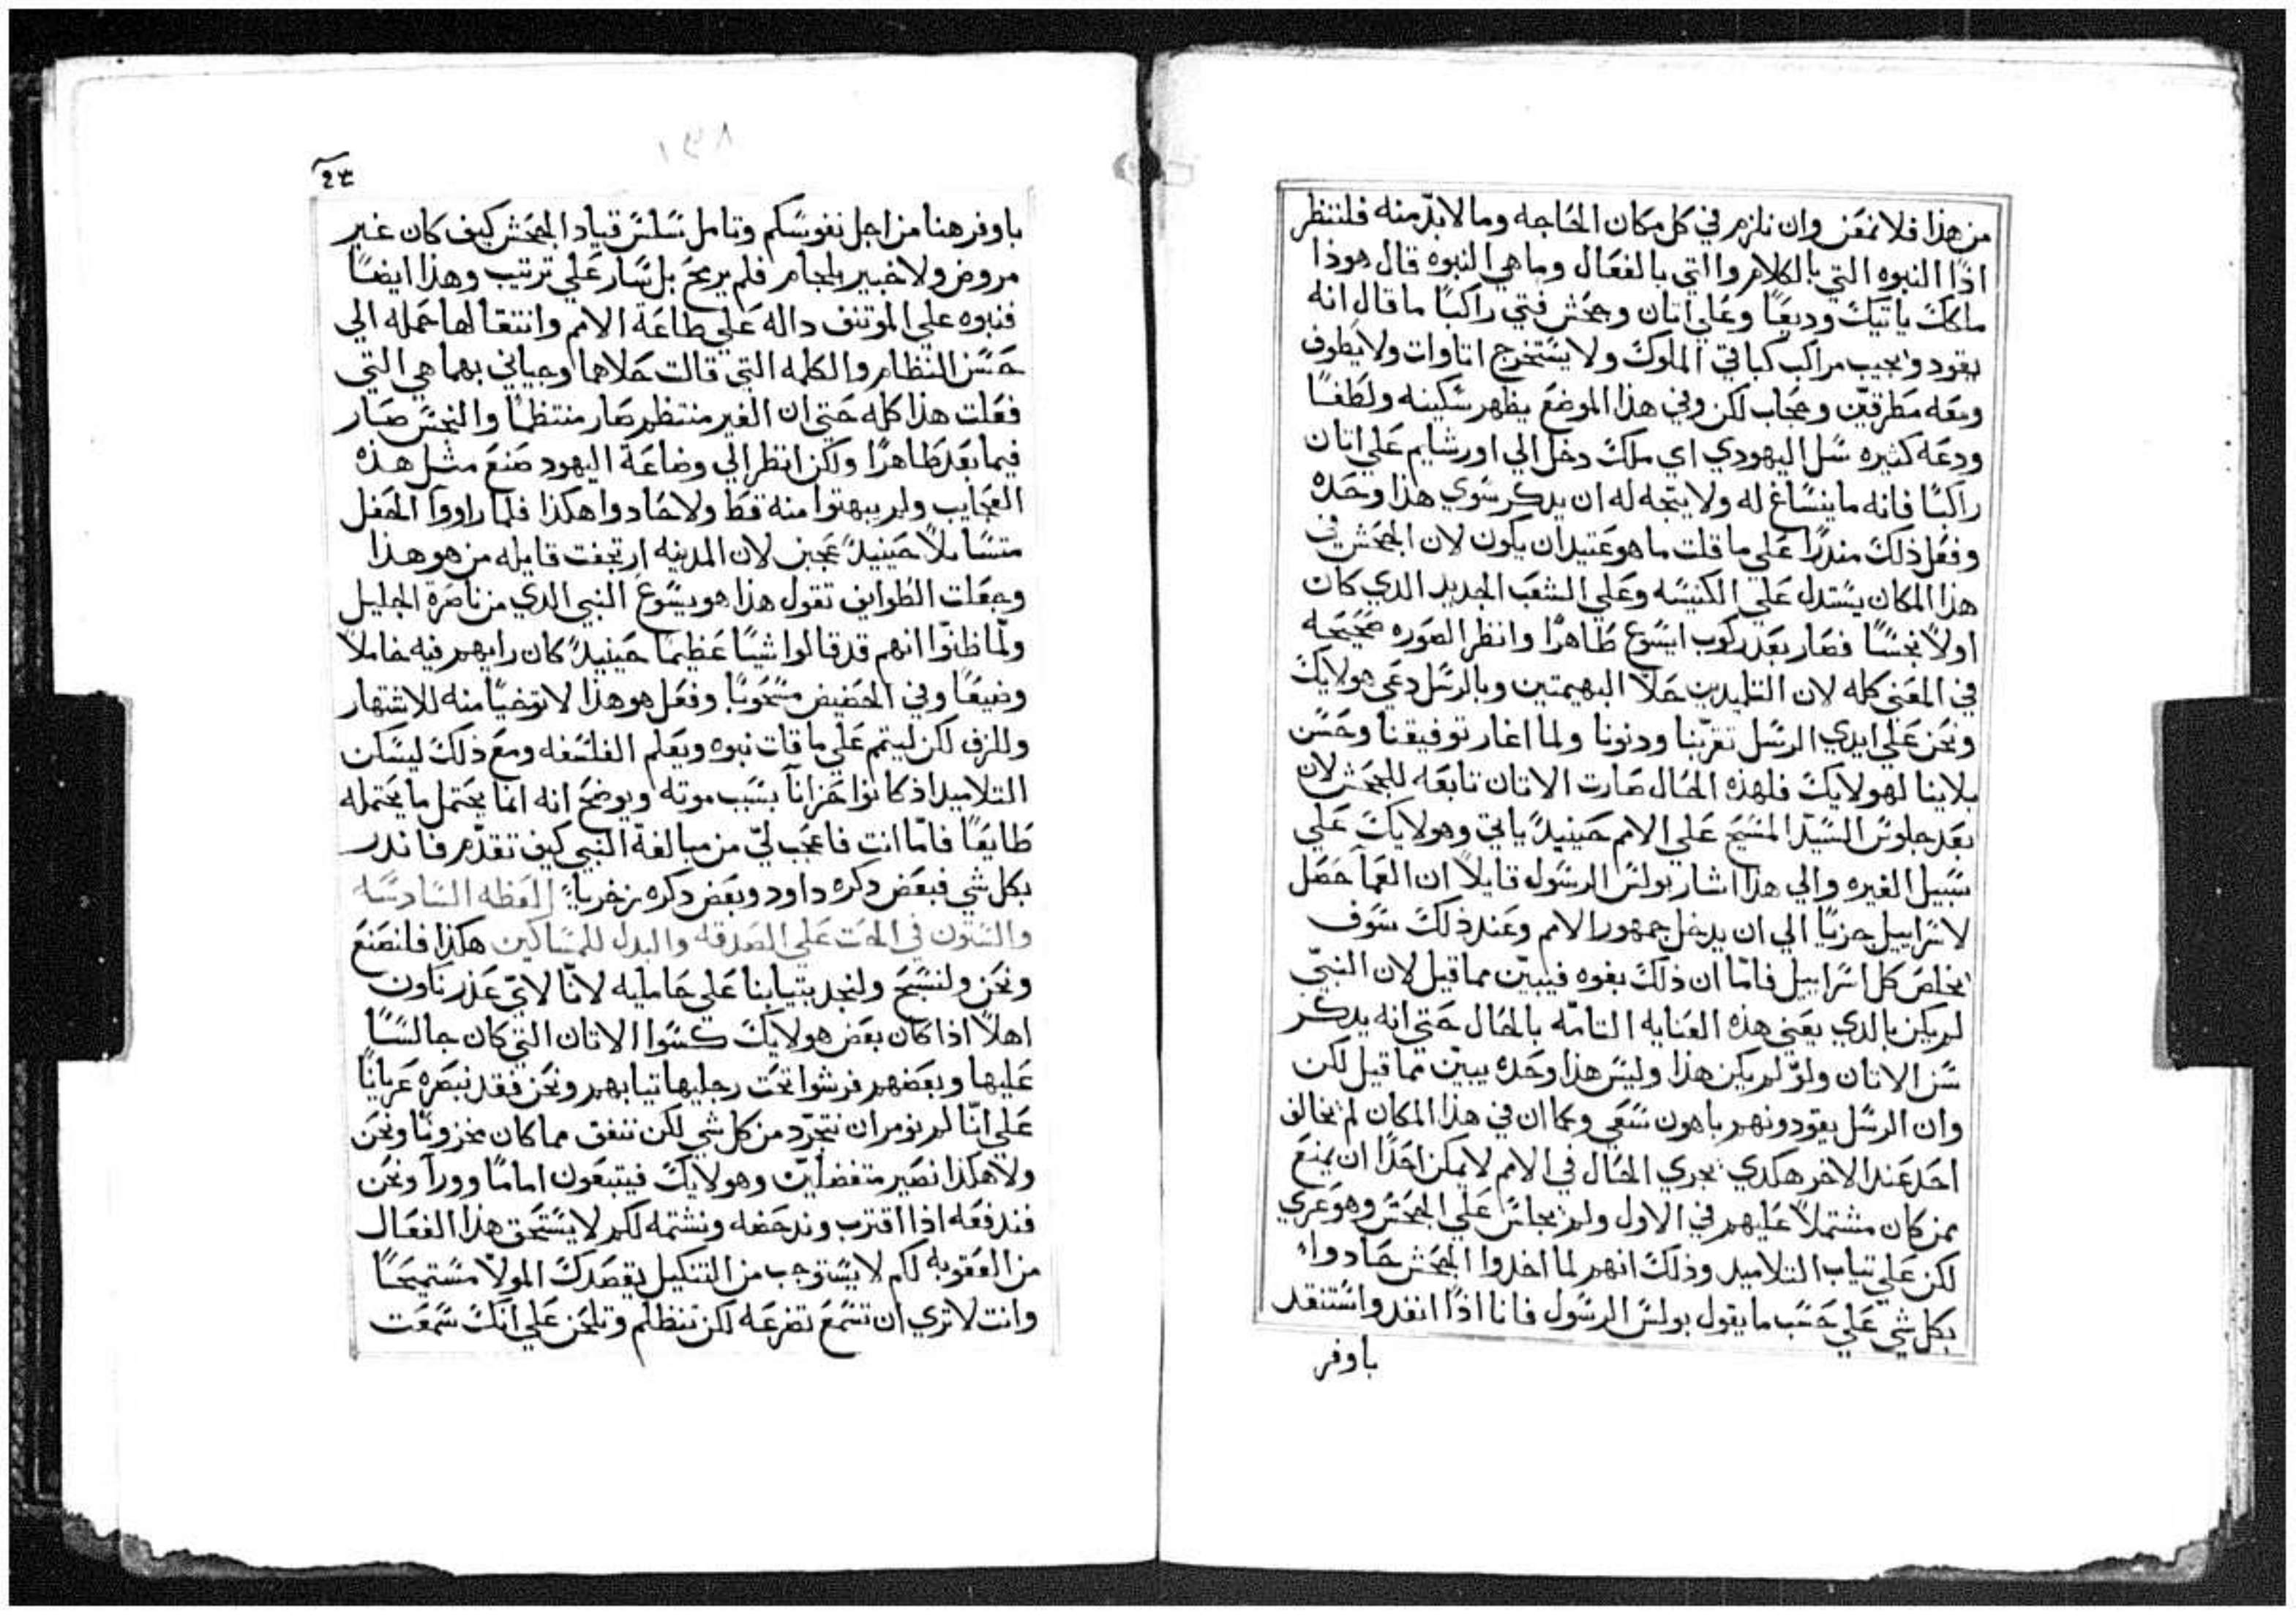 من هذا فلا نمعن وان نلزم في كل مكان الحاجه وما لا بدّ منه فلننظر
اذًا النبوه التي بالكلام والتي بالفعال وما هي النبوه قال هوذا
ملكك ياتيك وديعًا وعلي اتان وجحش فتي راكبًا ما قال انه
يقود وبجيب مراكب كباقي الملوك ولا يستخرج اتاوات ولا يطوف
ومعه مطرقين وحجاب لكن وفي هذا الموضع يظهر سكينه ولطفًا
ودعه كثيره سل اليهودي اي ملك دخل الي اورشليم علي اتان
راكبًا فانه ما ينساغ له ولا يتجه له ان يدكر سوي هذا وحده
وفعل ذلك منذرًا علي ما قلت ما هو عتيد ان يكون لان الجحش في
هذا المكان يستدل علي الكنيسه وعلي الشعب الجديد الدي كان
اولًا نجسًا فصار بعد ركوب ايسوع طاهرًا وانظر الصوره صحيحه
في المعني كله لان التلميدين حلّا البهيمتين وبالرسل دعي هولايك
ونحن علي ايدي الرسل تقرّبنا ودنونا ولما اغار توفيقنا وحسن
بلاينا لهولايك فلهذه الحال صارت الاتان تابعه للجحش لان
بعد جلوس السيّد المسيح علي الامم حينيدً ياتي وهولايك علي
سبيل الغيره والي هذا اشار بولس الرسول قايلًا ان العمآ حصل
لاسراييل جزيًا الي ان يدخل جمهور الامم وعند ذلك سوف
يخلص كل اسراييل فامّا ان ذلك بفوه فيبيّن مما قيل لان النبيّ
لم يكن بالدي يعني هذه العنايه التامّه بالحال حتي انه يدكر
سن الاتان ولوّ لم يكن هذا وليس هذا وحده يبيّن مما قيل لكن
وان الرسل يقودونهم باهون سعي وكما ان في هذا المكان لم يخالف
احد عند الاخر هكدي يجري الحال في الامم لا يمكن احدًا ان يمنع
ممن كان مشتملًا عليهم في الاول ولم يجلس علي الجحش وهو عري
لكن علي تياب التلاميد وذلك انهم لما اخدوا الجحش جادواء
بكل شي علي حسب ما يقول بولس الرسول فانا اذًا انفد واستنفد
باوفر
٢٣
١٣٨
باوفر هنا من اجل نفوسكم وتامل سلس قياد الجحش كيف كان غير
مروض ولا خبير بلجام فلم يرمح بل سار علي ترتيب وهذا ايضًا
فنبوه علي الموتنف داله علي طاعة الامم وانتقالها جمله الي
حسن النظام والكلمه التي قالت حلاها وجياني بهما هي التي
فعلت هذا كله حتي ان الغير منتظم صار منتظمًا والنجس صار
فيما بعد طاهرًا ولكن انظر الي وضاعة اليهود صنع مثل هذه
العجايب ولم يبهتوا منه قط ولا حادوا هكذا فلما راووا الحفل
متسايلًا حينيدً عجبن لان المدينه ارتجفت قايله من هو هذا
وجعلت الطوايف تقول هذا هو يسوع النبي الدي من ناصرة الجليل
ولمّا ظنوّا انهم قد قالوا شيًا عظيمًا حينيدً كان رايهم فيه خاملًا
وضيعًا وفي الحضيض مسحوبًا وفعل هو هذا لا توخيًا منه للاشتهار
وللزف لكن ليتم علي ما قلت نبوه ويعلم الفلسفه ومع ذلك ليسكن
التلاميد اذ كانوا حزانآ بسبب موته ويوضح انه انما يحتمل ما يحتمله
طايعًا فامّا انت فاعجب ليّ من مبالغة النبي كيف تقدّم فاندر
بكل شي فبعض دكره داود وبعض دكره زخريا: العظه السادسه
والستون في الحت علي الصدقه والبدل للمساكين هكذا فلنصنع
ونحن ولنسبح ولنجد بتيابنا علي حامليه لانّا لايّ عذر ناون
اهلًا اذا كان بعض هولايك كسوا الاتان التي كان جالسًا
عليها وبعضهم فرشوا تحت رجليها تيابهم ونحن فقد نبصره عريانًا
علي انّا لم نومر ان نتجرّد من كل شي لكن ننفق مما كان مخزونًا ونحن
ولا هكذا نصير متفضليّن وهولايك فيتبعون امامًا وورآ ونحن
فندفعه اذا اقترب وندحضه ونشتمه لكم لا يستحق هذا الفعال
من العقوبه لكم لا يستوجب من التنكيل يقصدك المولا مستميحًا
وانت لا تري ان تسمع تضرعه لكن تنظلم وتلحن علي انك سمعت